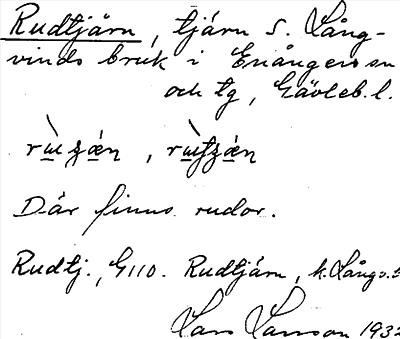 Rudtjärn, tjärn S. Lång-
vinds bruk i Enångers sn
och tg, Gävleb. l.
Där finns rudor.
Rudtj., G110. Rudtjärn, k. Långv.s
Lars Larsson 1932